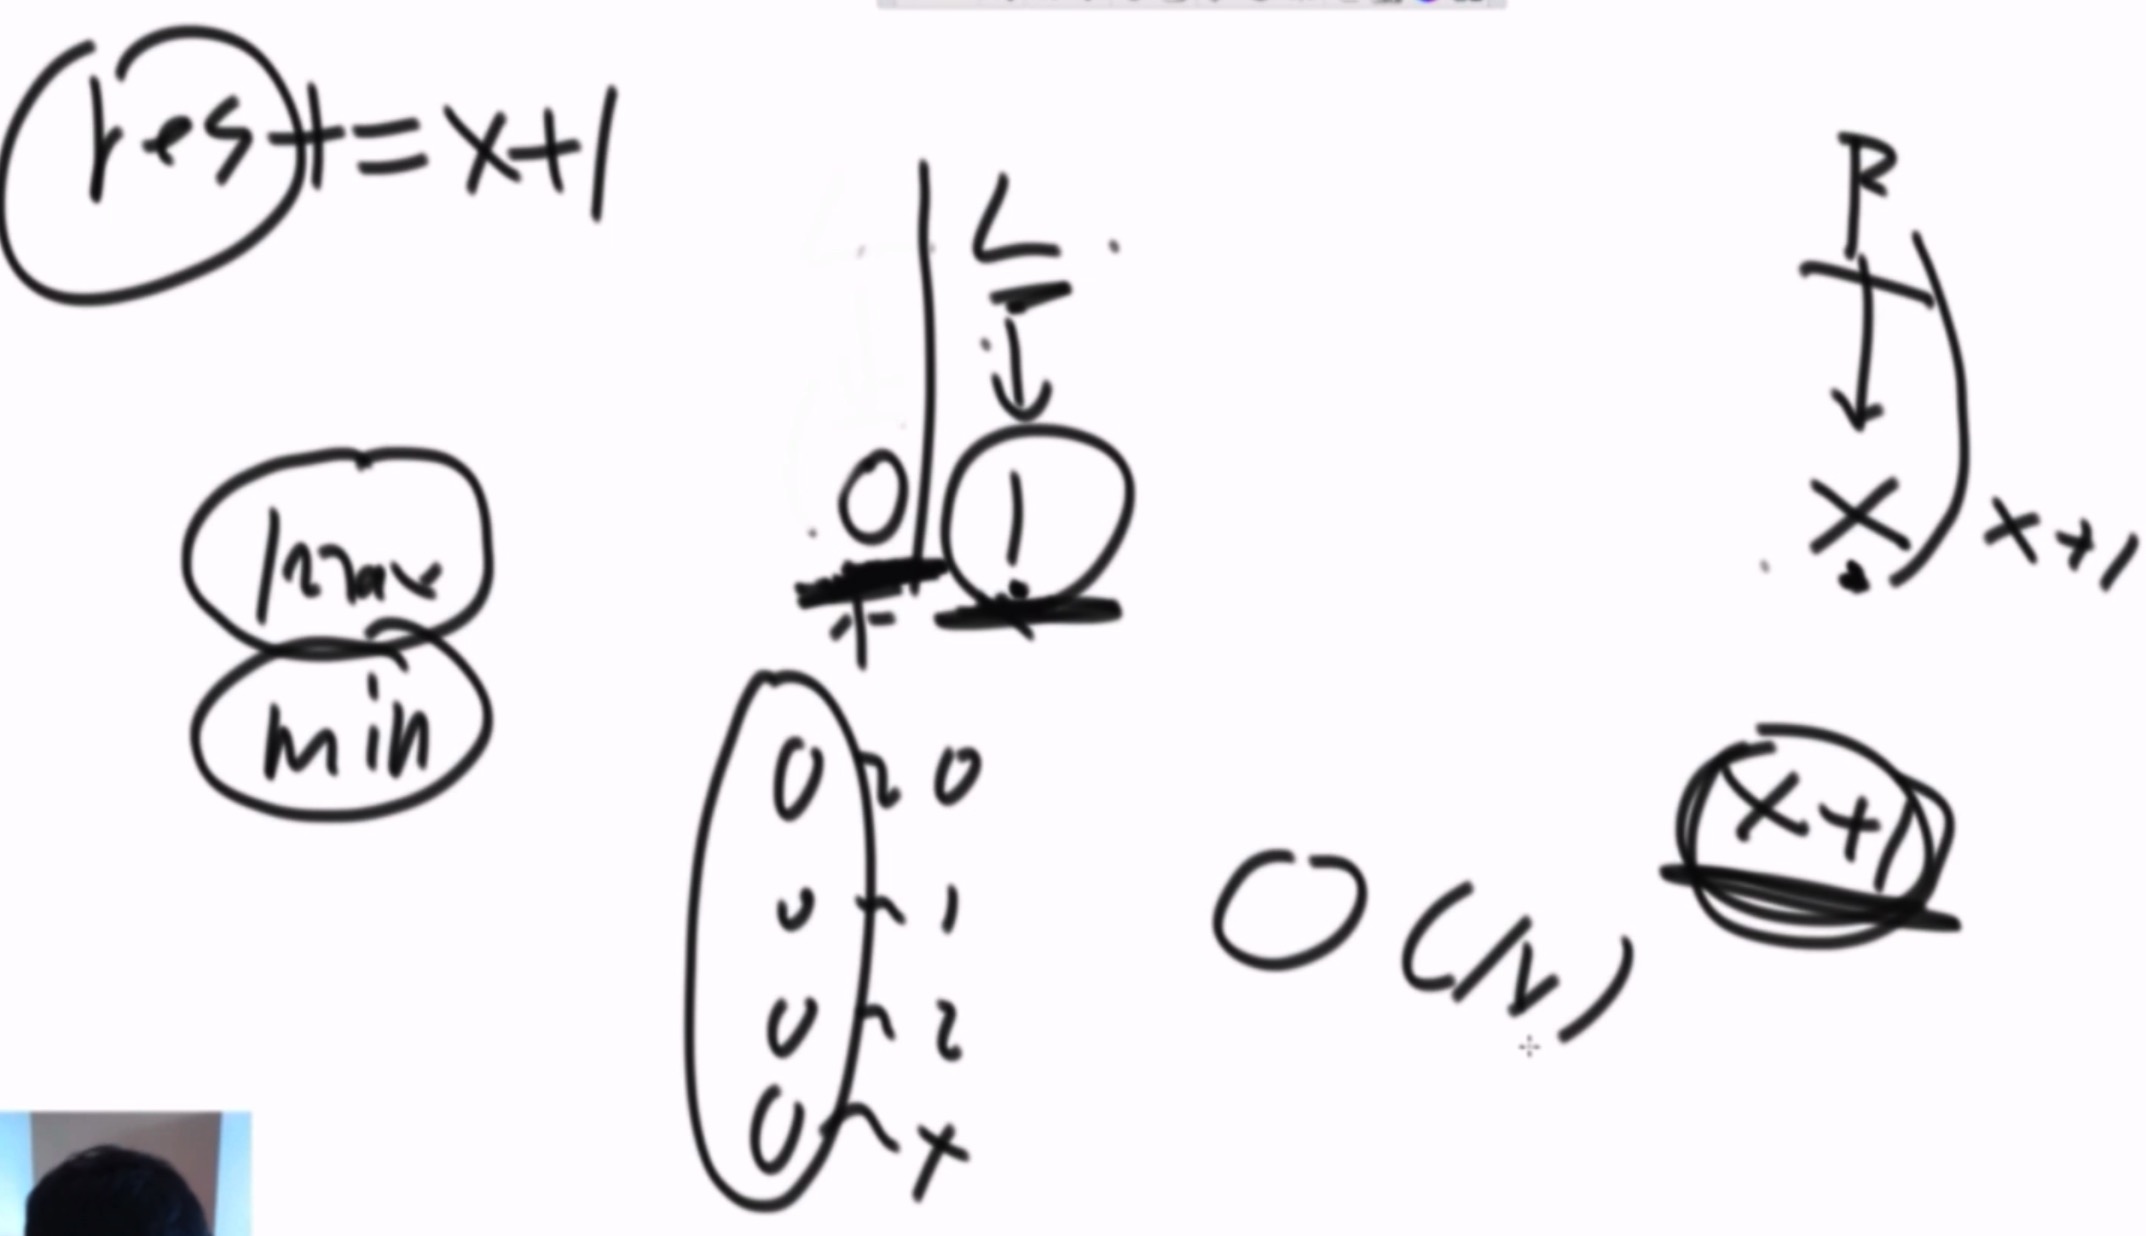 res += x+1
L
R
0 1
x x+1
max
min
0 ~ 0
0 ~ 1
0 ~ 2
0 ~ x
O(N)
x+1